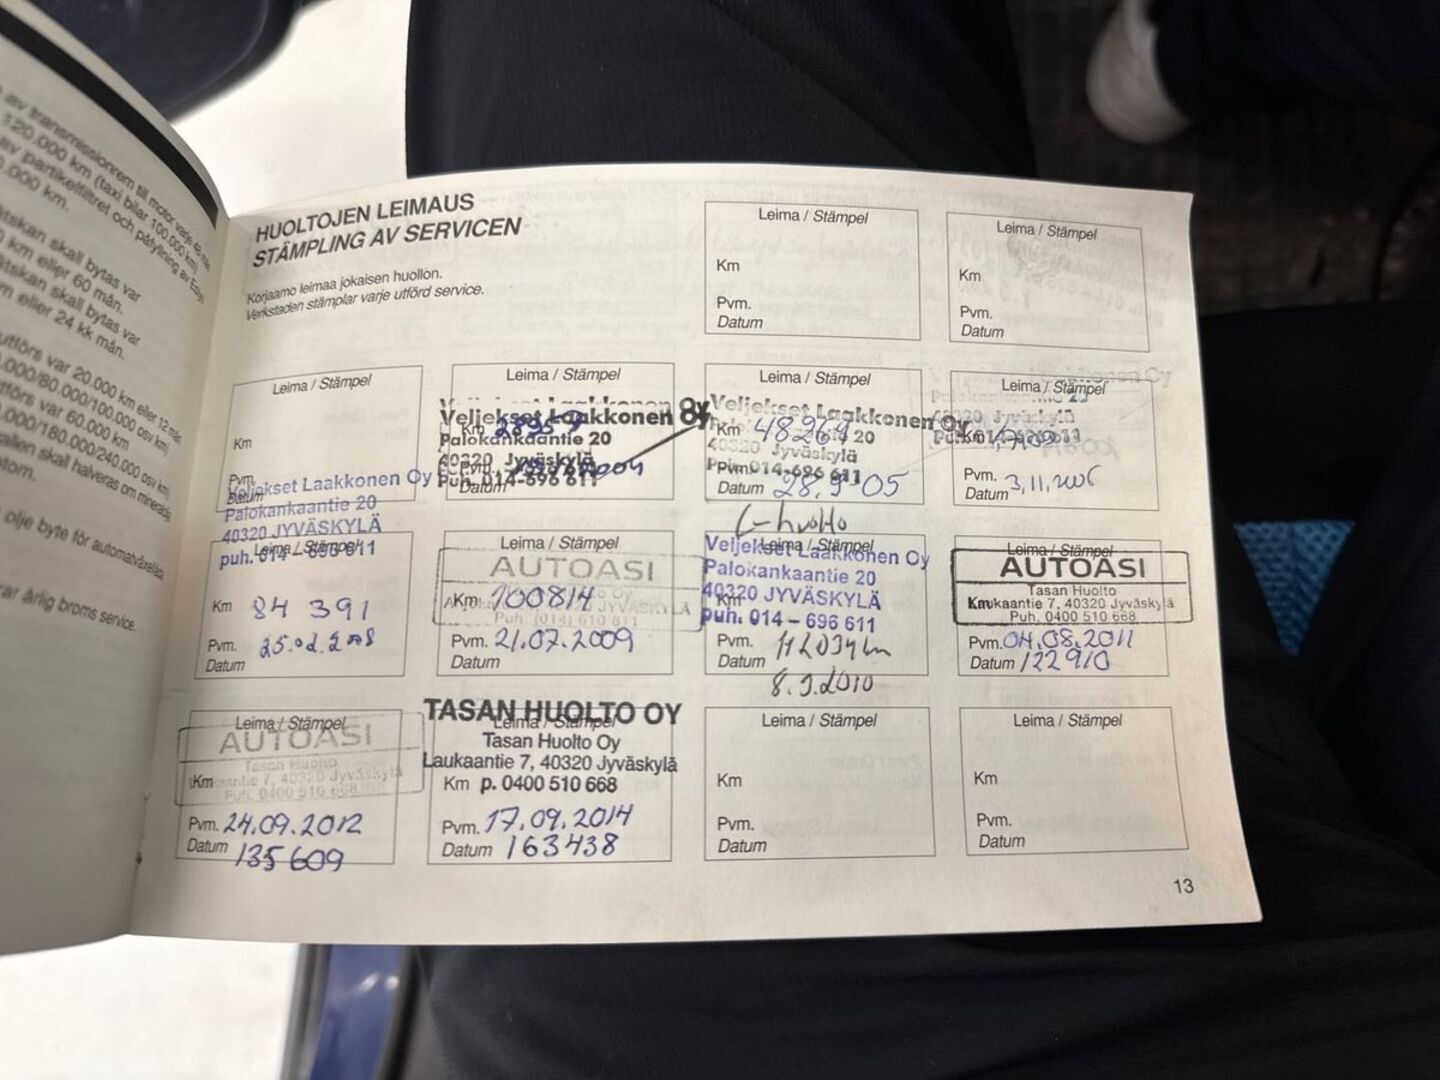 av transmissionrem till motor varje 48 mån
120.000 km (taxi bilar 100.000 km)
av partikelfiltret och påfyllning av Eolys
0.000 km.
tskan skall bytas var
0 km eller 60 mån.
tskan skall bytas var
m eller 24 kk mån.
utförs var 20.000 km eller 12 mån
.000/80.000/100.000 osv km)
tförs var 60.000 km
0.000/180.000/240.000 osv km)
vallen skall halveras om mineralolje
torn.
olje byte för automatväxellåda
rar årlig broms service.
HUOLTOJEN LEIMAUS
STÄMPLING AV SERVICEN
Korjaamo leimaa jokaisen huollon.
Verkstaden stämplar varje utförd service.
Leima / Stämpel
Km
Pvm.
Datum
Leima / Stämpel
Km
Pvm.
Datum
Leima / Stämpel
Km
Pvm.
Datum
Veljekset Laakkonen Oy
Palokankaantie 20
40320 JYVÄSKYLÄ
puh. 014 - 696 611
Leima / Stämpel
Veljekset Laakkonen Oy
Palokankaantie 20
40320 Jyväskylä
Puh. 014-696 611
Km
Pvm.
Leima / Stämpel
Veljekset Laakkonen Oy
20
40320 Jyväskylä
Puh. 014-696 611
Km 48269
Pvm.
Datum 28.9.05
L-huolto
Leima / Stämpel
Palokankaantie 20
40320 Jyväskylä
Km
Pvm.
Datum 3.11.2006
Leima / Stämpel
Km 84 391
Pvm. 25.02.2008
Datum
Leima / Stämpel
AUTOASI
Km 100814
Pvm. 21.07.2009
Datum
Leima / Stämpel
Veljekset Laakkonen Oy
Palokankaantie 20
40320 JYVÄSKYLÄ
puh. 014 - 696 611
Km
Pvm. 112034 km
Datum
8.9.2010
Leima / Stämpel
AUTOASI
Tasan Huolto
Laukaantie 7, 40320 Jyväskylä
Puh. 0400 510 668
Km
Pvm. 04.08.2011
Datum 122910
Leima / Stämpel
AUTOASI
Tasan Huolto
Laukaantie 7, 40320 Jyväskylä
Puh. 0400 510 668
Km
Pvm. 24.09.2012
Datum 135609
TASAN HUOLTO OY
Leima / Stämpel
Tasan Huolto Oy
Laukaantie 7, 40320 Jyväskylä
Km p. 0400 510 668
Pvm. 17.09.2014
Datum 163438
Leima / Stämpel
Km
Pvm.
Datum
Leima / Stämpel
Km
Pvm.
Datum
13